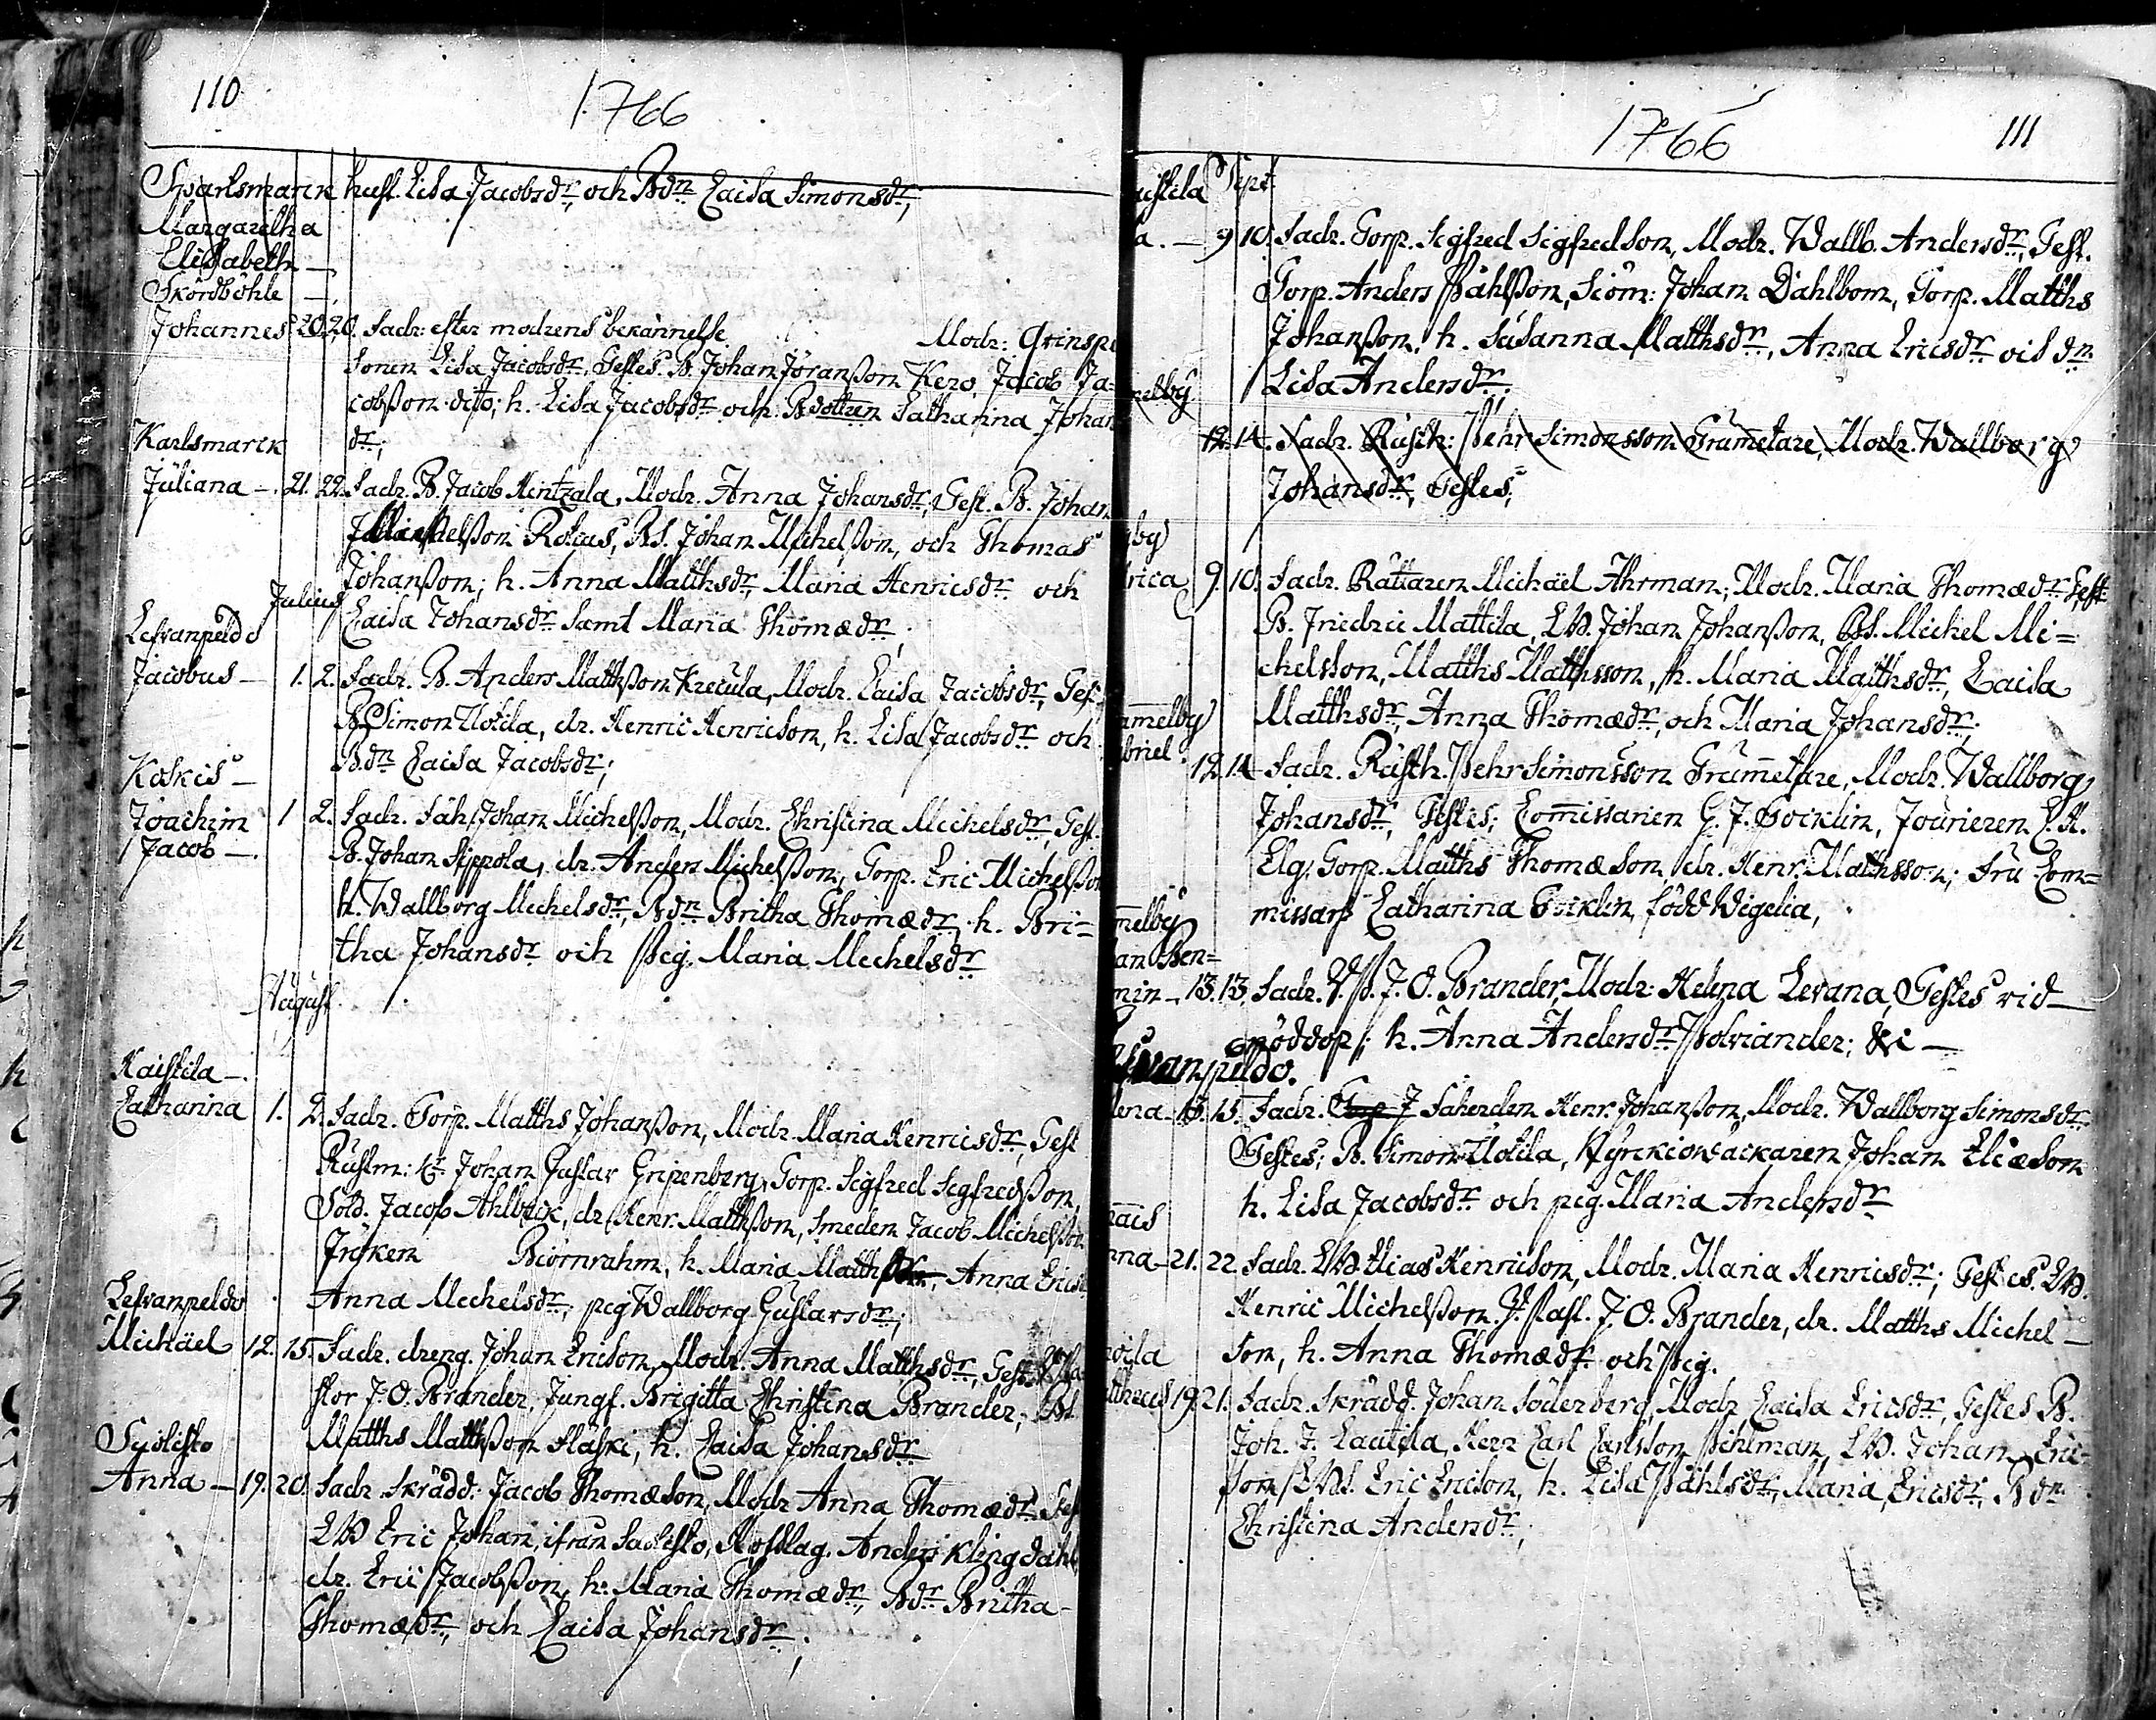 110
1766
Sparlsmarck hust. Lisa Jacobsdr, och Bdn Caisa Simonsdr,
Margaretha
Elisabeth —
Skördböhle —
Johannes 20. 20. Fadr: efter modrens bekännelse Modr: Qvinsp
sonen Lisa Jacobsdr, Testes. B. Johan Jöranßon Kero, Jacob Ja=
cobßon dito; h. Lisa Jacobsdr och Bdottren Catharina Johan
Karlsmarck dr;
Juliana —. 21. 22. Fadr. B. Jacob Hentzala, Modr. Anna Johansdr, Test. B. Johan
Michelßon Rotius, Bs. Johan Michelßon, och Thomas
Johanßon; h. Anna Matthsdr, Maria Henricsdr och
Julius Caisa Johansdr samt Maria Thomædr;
Lefvanpeldo
Jacobus — 1. 2. Fadr. B. Anders Matthßon Krecula, Modr. Caisa Jacobsdr, Test.
B Simon Uotila, dr. Henric Henricson, h. Lisa Jacobsdr och
Bdn Caisa Jacobsdr;
Koskis —
Joachim 1 2. Fadr. Fäh. Johan Michelßon, Modr. Christina Michelsdr, Test.
Jacob —. B. Johan Sippola, dr. Anders Michelßon, Torp. Eric Michelßon
h. Wallborg Michelsdr, Bdn Britha Thomædr, h. Bri=
tha Johansdr och Pig. Maria Michelsdr
August.
Kaistila —.
Catharina 1. 2. Fadr. Torp. Matths Johanßon, Modr. Maria Henricsdr, Test
Rustm: Hr Johan Gustav Gripenberg, Torp. Sigfred Sigfredßon,
Sold. Jacob Ahlbeck, dr Henr. Matthßon, Smeden Jacob Michelßon
Björnrahm, h. Maria Matths Anna Ericsd
Lefvanpeldo Anna Michelsdr, pig Wallborg Gustavsdr;
Michäel 12. 15. Fadr. dreng. Johan Ericson, Modr. Anna Matthsdr, Test.
stor J. O. Brander, Jungf. Brigitta Christina Brander, Bs.
Matths Matthßon Fläski, h. Caisa Johansdr
Syölisto
Anna — 19. 20. Fadr. Skrädd: Jacob Thomæson, Modr Anna Thomædr Test
LW Eric Johan, ifrån Anders Klingdahl
dr. Eric Jacobßon, h. Maria Thomædr, Bdr Britha
Thomædr, och Caisa Johansdr;
1766
111
istila Sept.
a. — 9 10. Fadr. Torp. Sigfred Sigfredson, Modr. Wallb. Andersdr, Test.
Torp. Anders Påhlßon, Siöm: Johan Dahlbom, Torp. Matths
Johanßon, h. Susanna Matthsdr, Anna Ericsdr och dn
melby Lisa Andersdr;
12. 14. Fadr. Rusth: Pehr Simonsson Trumetare, Modr. Wallborg
Johansdr, Testes;
by
rica 9. 10. Fadr. Rättaren Michäel Ahrman, Modr. Maria Thomædr Test:
B. Friedric Mattila, LW. Johan Johanßon, Bs. Michel Mi=
chelsson, Matths Matthsson, h. Maria Matthsdr, Caisa
mmelby Matthsdr, Anna Thomædr, och Maria Johansdr;
briel. 12. 14 Fadr. Rusth. Pehr Simonsson Trumetare, Modr. Wallborg
Johansdr, Testes; Commissarien G. J. Forierern C. H.
Elg, Torp. Matths Thomæson dr. Henr. Matthsson; Fru Com=
melby missars Catharina född Wigelia,
an Ben=
min — 13. 13. Fadr. V. P. J. O. Brander, Modr: Helena Levana, Testes vid
h. Anna Andersdr Polviander; &c —
Lefvanpeldo.
lena — 13. 15. Fadr. Faherden Henr. Johanßon, Modr. Wallborg Simonsdr.
Testes; B. Simon Uotila, Kyrckiowäckaren Johan Eliæson
h. Lisa Jacobsdr och pig. Maria Andersdr
nais
nna — 21. 22. Fadr. LW Elias Henricson, Modr. Maria Henricsdr; Testes. LW.
Henric Michelßon. J. O. Brander, dr. Matths Michel —
oila son, h. Anna Thomædr och Pig.
ttheus 19. 21. Fadr. Skrädd. Johan Söderberg, Modr. Caisa Ericsdr, Testes B.
Joh. J. Lautila, Herr Carl Carlsson Pihlman, LW. Johan Eric
son LWs. Eric Ericson, h. Lisa Påhlsdr, Maria Ericsdr, Bdr
Christina Andersdr;